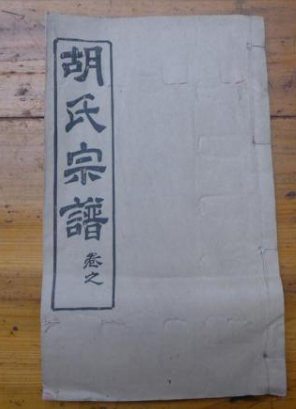 胡氏宗譜
卷之